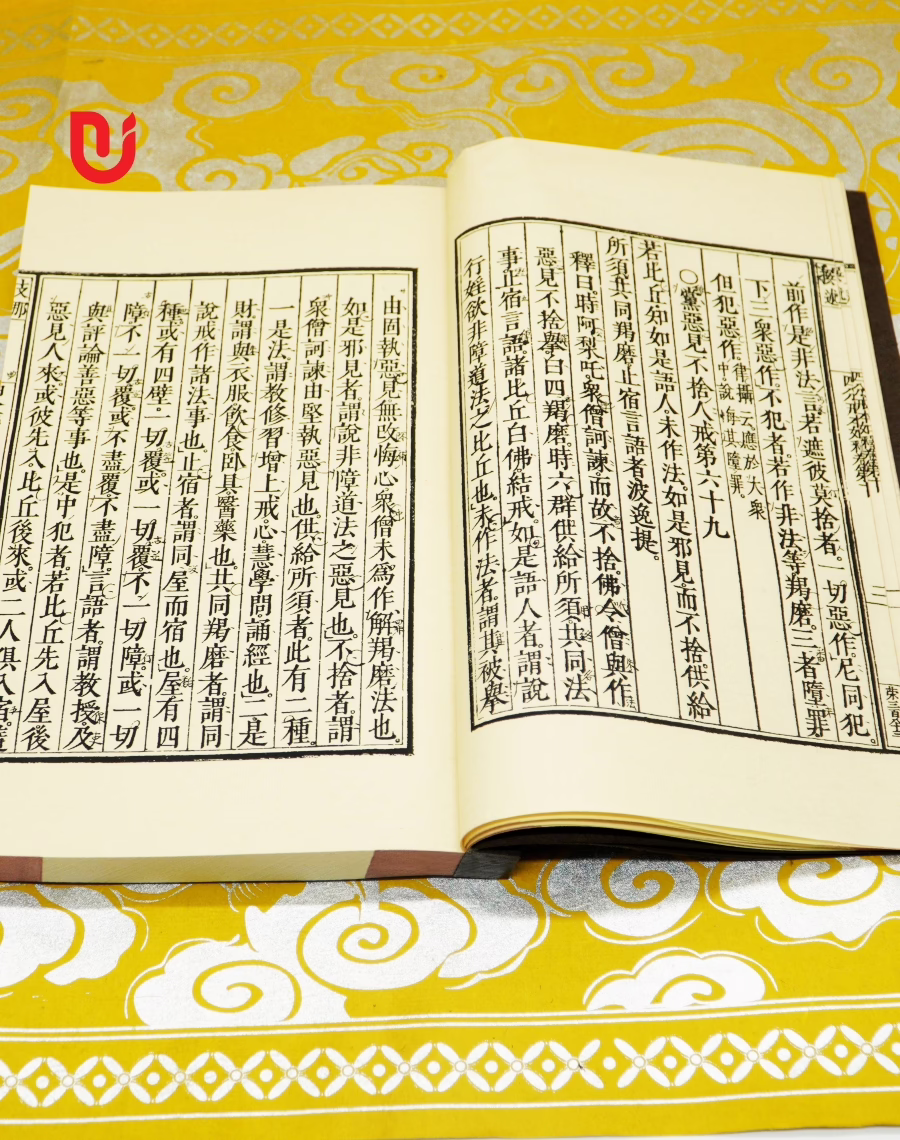 前作是非法言若遮彼莫捨者。一切惡作。尼同犯。
下三衆惡作。不犯者。若作非法等羯磨。三者障罪
但犯惡作
律攝云應於大衆
中說悔其障罪
○黨惡見不捨人戒第六十九
若比丘知如是語人。未作法。如是邪見。而不捨。供給
所須。共同羯磨。止宿言語者。波逸提。
釋曰。時阿梨吒。衆僧訶諫。而故不捨。佛令僧與作
惡見不捨舉。白四羯磨。時六群供給所須。共同法
事。止宿言語。諸比丘白佛。結戒。如是語人者。謂說
行婬欲非障道法之比丘也。未作法者。謂其被舉
由固執惡見無改悔心。衆僧未爲作解羯磨法也。
如是邪見者。謂說非障道法之惡見也。不捨者。謂
衆僧訶諫。由堅執惡見也。供給所須者。此有二種。
一是法。謂教修習增上戒。心。慧。學問。誦經也。二是
財。謂與衣服飲食。臥具醫藥也。共同羯磨者。謂同
說戒作諸法事也。止宿者。謂同屋而宿也。屋有四
種。或有四壁。一切覆。或一切覆。不一切障。或一切
障不一切覆。或不盡覆。不盡障。言語者。謂教授。及
與評論善惡等事也。是中犯者。若比丘先入屋。後
惡見人來。或彼先入。比丘後來。或二人俱入宿。